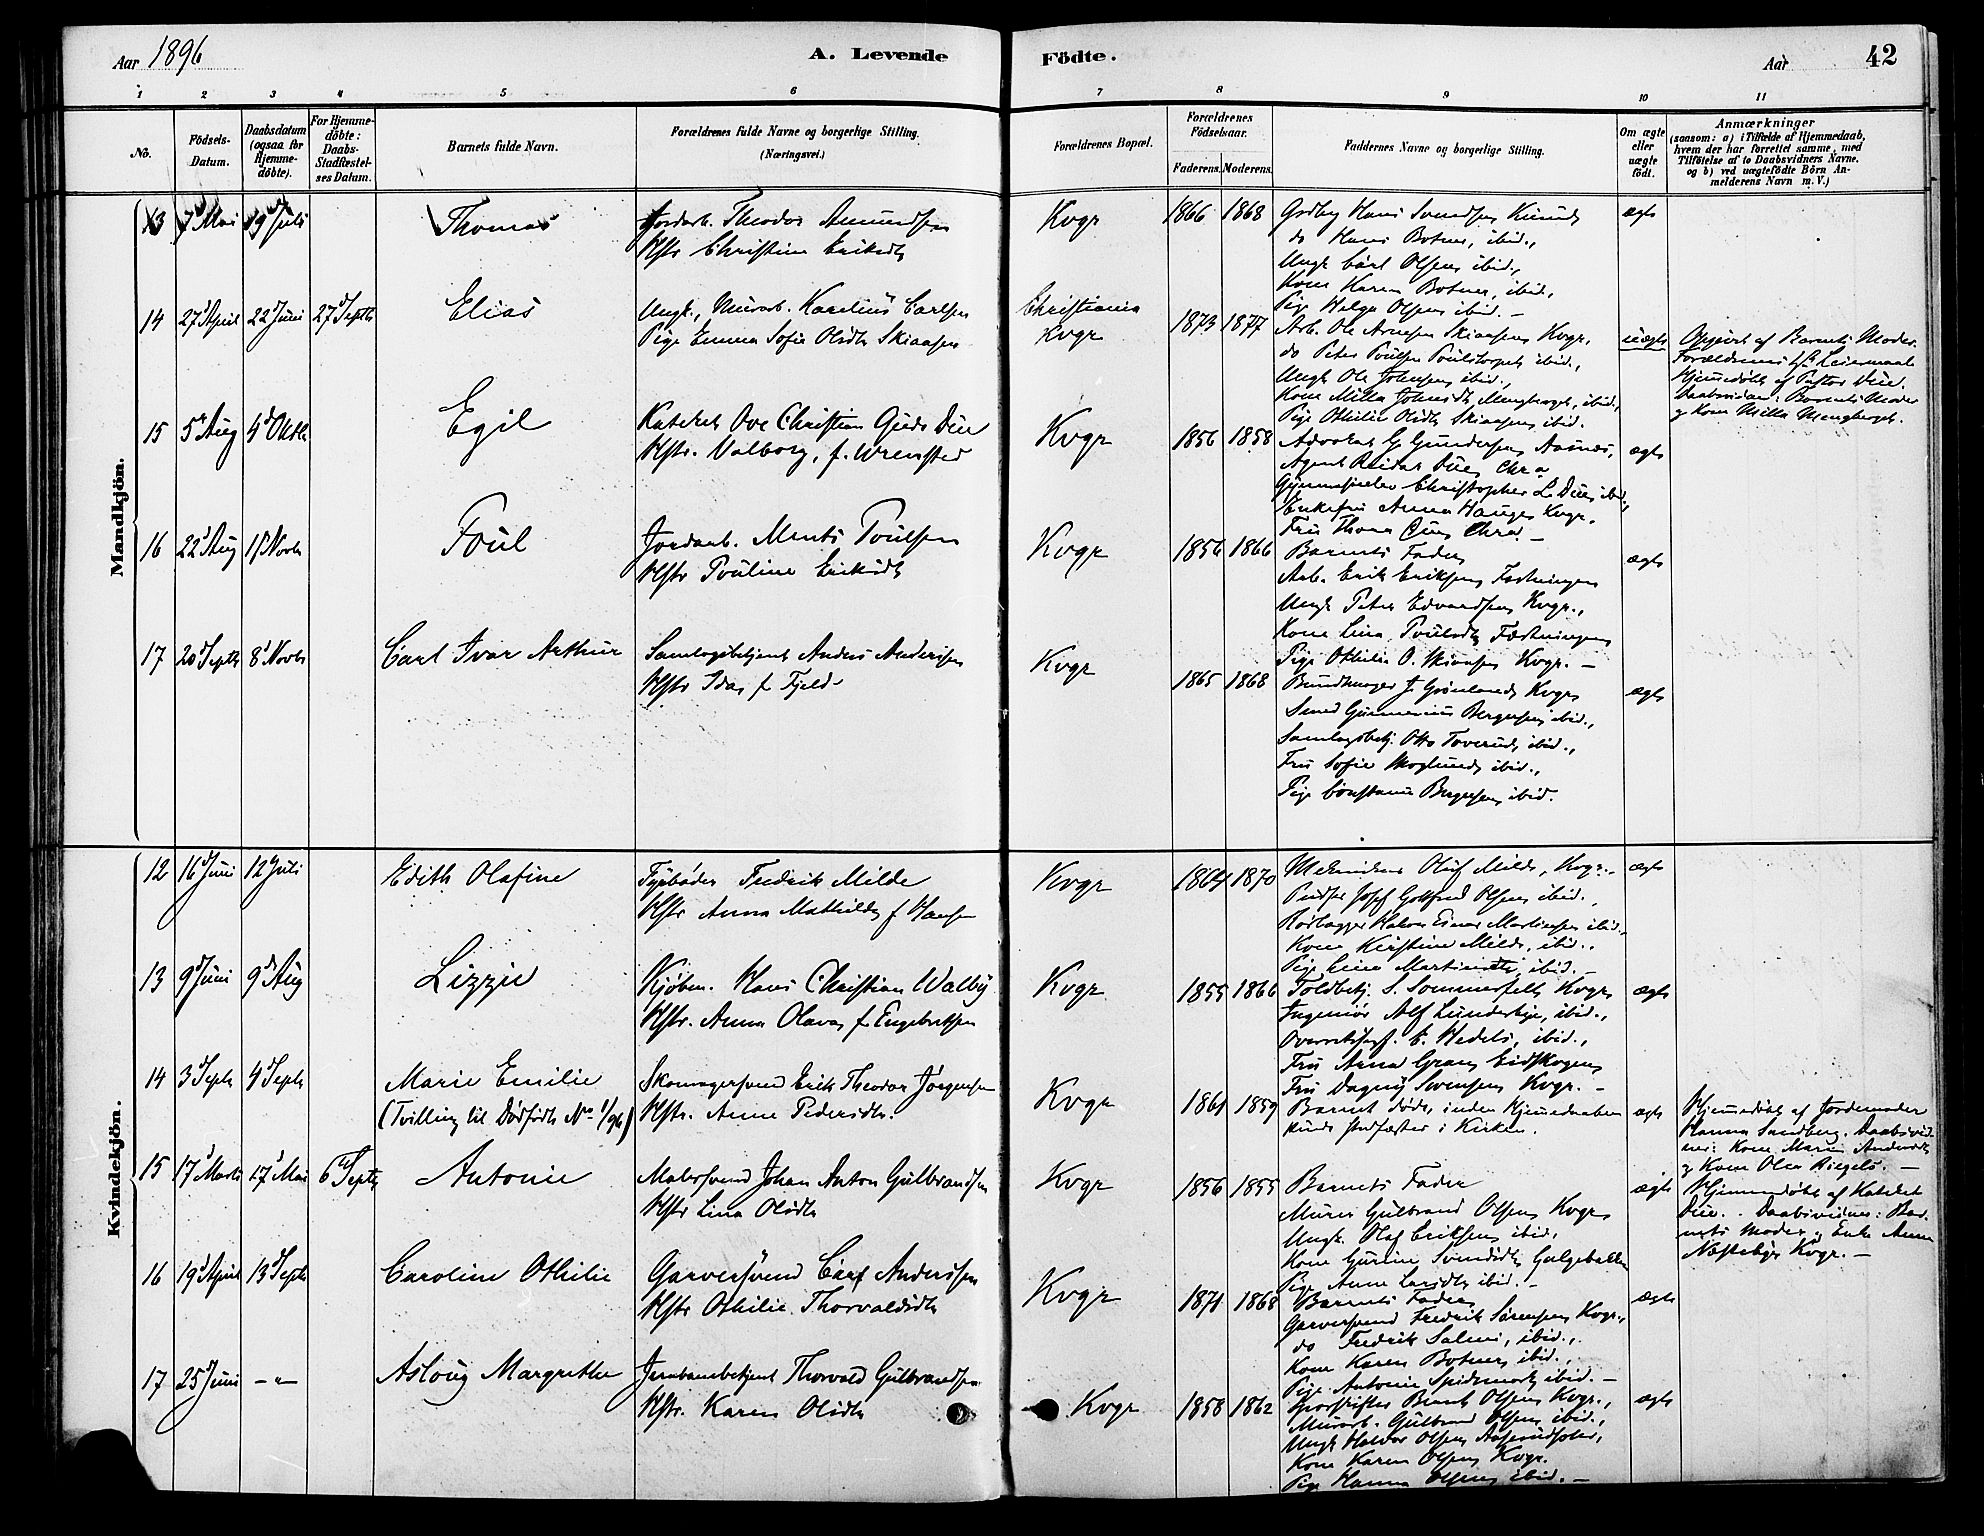 Aar 1896
A. Levende Födte.
Aar
42
1 2 3 4 5 6 7 8 9 10 11
No.
Födsels-
Datum.
Daabsdatum
(ogsaa for
Hjemme-
döbte).
For Hjemme-
döbte:
Daabs-
Stadfæstel-
ses Datum.
Barnets fulde Navn.
Forældrenes fulde Navne og borgerlige Stilling.
(Næringsvei.)
Forældrenes Bopæl.
Forældrenes
Födselsaar.
Faderens. Moderens.
Faddernes Navne og borgerlige Stilling.
Om ægte
eller
uægte
födt.
Anmærkninger
(saasom: a) i Tilfælde af Hjemmedaab,
hvem der har forrettet samme, med
Tilföielse af to Daabsvidners Navne,
og b) ved uægtefödte Börn An-
melderens Navn m. V.)
Mandkjön.
13 7 Mai 19 Juli Thomas
Jordarb. Theodor Amundsen
Hstr Christine Eriksdtr
Kvgr 1866 1868
Hans Svendsen
do Hans Botner, ibid.,
Ungk Carl Olsen, ibid.,
Kone Karen Botner, ibid.,
Pige Helga Olsen ibid. –
ægte
14 27 April 22 Juni 27 Septb Elias
Ungk., Murarb. Karelius Carlsen
Pige Emma Sofie Olsdtr Skiaasen
Christiania
Kvgr
1873 1877
Arb. Ole Arnesen Skiaasen, Kvgr,
do Peter Poulsen Poulstorpet, ibid.,
Ungk Ole Johnsen, ibid.,
Kone Milla Johnsdtr Mengberget, ibid.,
Pige Othilie Olsdtr Skiaasen, ibid.
uægte
Opgivet af Barnets Moder.
Forældrenes Leiermaal
Hjemmedøbt af Pastor Due.
Daabsvidner: Barnets Moder
og Kone Milla Mengberget.
15 5 Aug 4 Oktb Egil
Kateket Ove Christian Gjeds Due
Hstr. Valborg, f. Wrensted
Kvgr 1856 1858
Advokat G. Gundersen, Aasnæs,
Agent Reidar Due, Chra
Christopher L. Due, ibid.,
Enkefru Anna Hauge, Kvgr.
Fru Thona Due, Chra. –
ægte
16 22 Aug 15 Novb Poul
Jordarb. Ments Poulsen
Hstr Pouline Eriksdtr
Kvgr 1856 1866
Barnets Fader,
Arb. Erik Eriksen, Fæstningen
Ungk Peter Edvardsen, Kvgr.,
Kone Lina Poulsdtr, Fæstningen
Pige Othilie O. Skiaasen, Kvgr. –
ægte
17 20 Septb 8 Novb Carl Ivar Arthur
Samlagsbetjent Anders Andersen
Hstr Ida, f Fjeld
Kvgr 1865 1868
Bundtmager J. Grønland, Kvgr,
Smed Gunnerius Bergersen, ibid.,
Samlagsbetj. Otto Toverud, ibid.,
Fru Sofie Moglund, ibid.,
Pige Constance Bergersen, ibid.
ægte
Kvindekjön.
12 16 Juni 12 Juli Edith Olafine
Fyrbøder Fredrik Milde
Hstr Anna Mathilde f Hansen
Kvgr 1864 1870
Olaf Milde, Kvgr.,
Pudser Josef Gottfred Olsen, ibid.,
Rørlægger Hakon Einar Martinsen ibid.,
Kone Kirstine Milde, ibid.,
Pige Lina Martinsdtr, ibid. –
ægte
13 9 Juni 9 Aug Lizzie
Kjøbm. Hans Christian Walby
Hstr. Anna Olava, f. Engebretsen
Kvgr 1855 1866
Toldbetj. S. Sommerfelt, Kvgr,
Ingeniør Alf Lunderbye, ibid.,
Overretssagf. C. Hedels, ibid.,
Fru Anna Gran, Eidskogen,
Fru Dagny Svensen, Kvgr. –
ægte
14 3 Septb 4 Septb Marie Emilie
(Tvilling til Dødfødt No 1/96)
Skomagersvend Erik Theodor Jørgensen
Hstr. Anne Pedersdtr.
Kvgr 1861 1859
Barnet døde, inden Hjemmedaaben
kunde stadfæstes i Kirken.
ægte
Hjemmedøbt af Jordemoder
Hanna Sandberg. Daabsvid-
ner: Kone Maren Andersdtr
og Kone Olea Riegels. –
15 17 Marts 17 Mai 6 Septb Antonie
Malersvend Johan Anton Gulbrandsen
Hstr Lina Olsdtr
Kvgr 1856 1855
Barnets Fader
Murer Gulbrand Olsen, Kvgr,
Ungk. Olaf Eriksen, ibid.,
Kone Gurine Svendsdtr, Galgebakken
Pige Anna Larsdtr, ibid. –
ægte
Hjemmedøbt af Kateket
Due. Daabsvidner: Bar-
nets Moder og Enke Anna
Næsteby, Kvgr. –
16 19 April 13 Septb Caroline Othilie
Garversvend Carl Anderssen
Hstr Othilie Thorvaldsdtr
Kvgr 1871 1868
Barnets Fader,
Garversvend Fredrik Sørensen, Kvgr.,
do Fredrik Salmi, ibid.,
Kone Karen Botner, ibid.,
Pige Antonie Spidsmark, ibid. –
ægte
17 25 Juni –"– Asloug Margrethe
Jernbanebetjent Thorvald Gulbrandsen
Hstr. Karen Olsdtr
Kvgr 1858 1862
Sporskifter Bernt Olsen, Kvgr.,
Murarb. Gulbrand Olsen, ibid.,
Ungk Halvor Olsen,
Kone Karen Olsen, Kvgr.
Pige Hanna Olsen, ibid. –
ægte